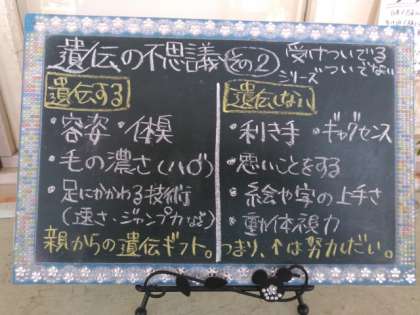 遺伝の不思議 その2 受けついでる
シリーズ ついでない
遺伝する
・容姿 ・体臭
・毛の濃さ(ハゲ)
・足にかかわる技術
(速さ・ジャンプ力など)
遺伝しない
・利き手 ・ギャグセンス
・悪いことをする
・絵や字の上手さ
・動体視力
親からの遺伝ギフト。つまり、↑は努力しだい。